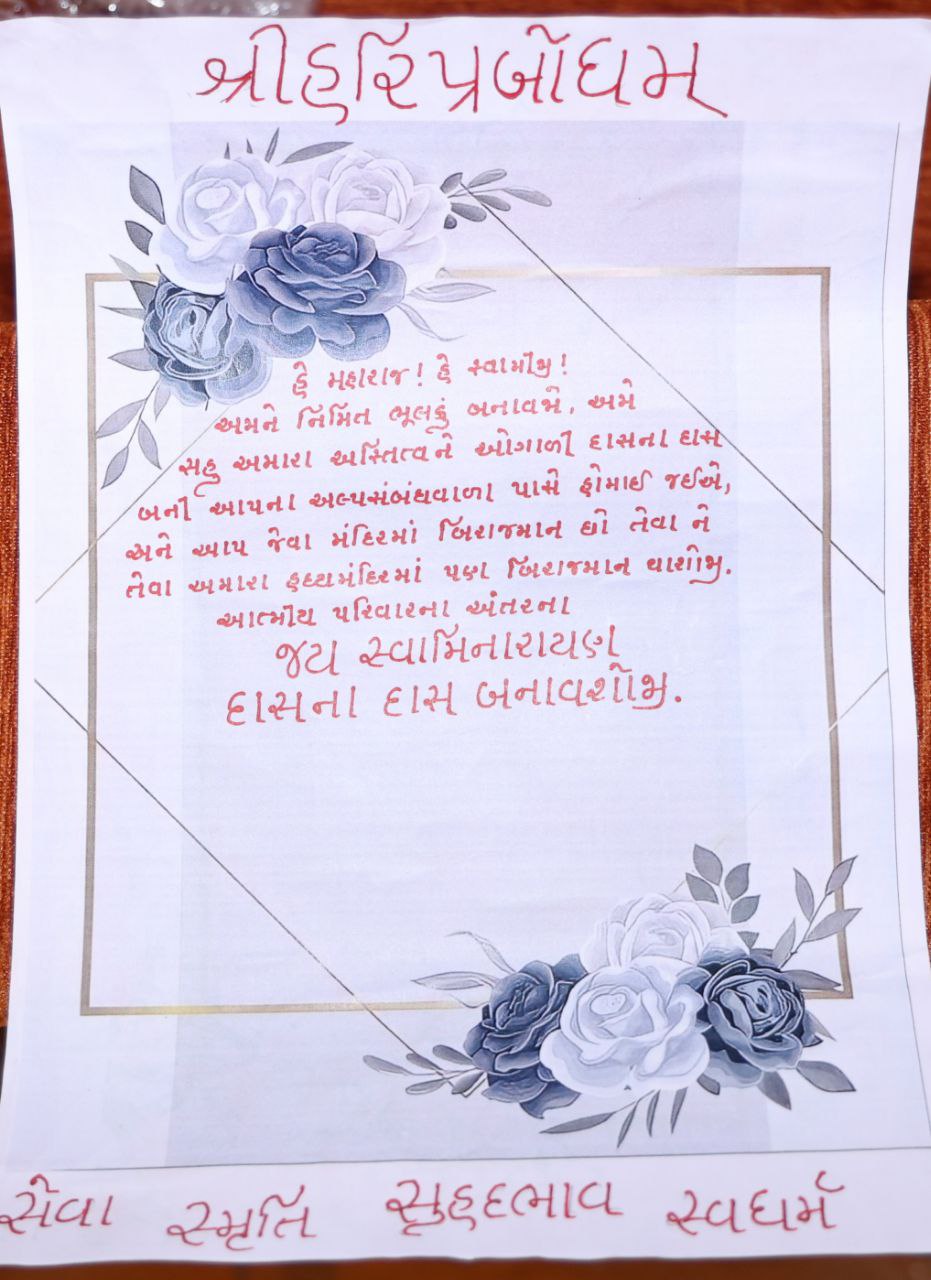 શ્રીહરિપ્રબોધમ્
હે મહારાજ! હે સ્વામીજી!
અમને નિમિત ભૂલકું બનાવજો, અમે
સહુ અમારા અસ્તિત્વને ઓગાળી દાસના દાસ
બની આપના અલ્પસંબંધવાળા પાસે હોમાઈ જઈએ,
અને આપ જેવા મંદિરમાં બિરાજમાન છો તેવા ને
તેવા અમારા હૃદયમંદિરમાં પણ બિરાજમાન થાશોજી.
આત્મીય પરિવારના અંતરના
જય સ્વામિનારાયણ
દાસના દાસ બનાવશોજી.
સેવા સ્મૃતિ સુહૃદભાવ સ્વધર્મ